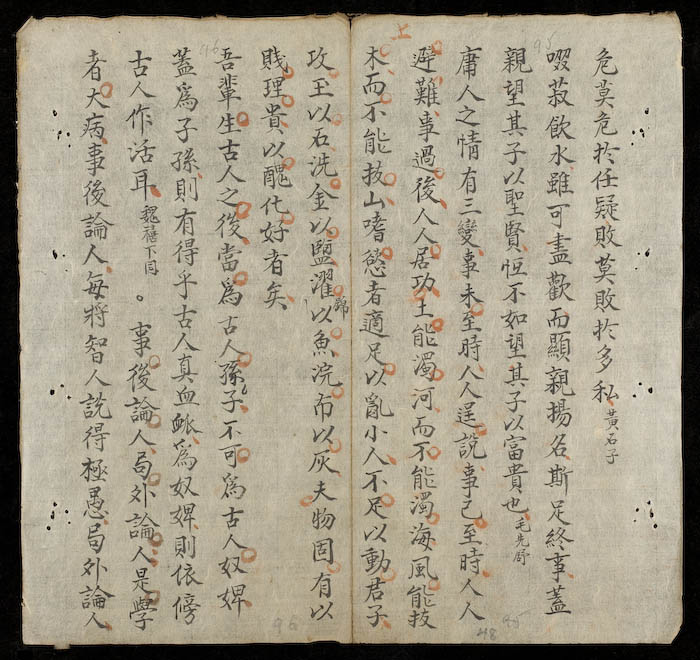 上
95
危莫危於任疑敗莫敗於多私黃石子
啜菽飲水雖可盡歡而顯親揚名斯足終事蓋
親望其子以聖賢恒不如望其子以富貴也毛先舒
庸人之情有三變事未至時人人逞說事已至時人人
避難事過後人人居功土能濁河而不能濁海風能拔
木而不能拔山嗜慾者適足以亂小人不足以動君子
48
95
96
攻玉以石洗金以鹽濯錦以魚浣布以灰夫物固有以
賤理貴以醜化好者矣
吾輩生古人之後當爲古人孫子不可爲古人奴婢
蓋爲子孫則有得乎古人真血衇爲奴婢則依傍
古人作活耳魏禧下同。事後論人局外論人是學
者大病事後論人每將智人說得極愚局外論人
96